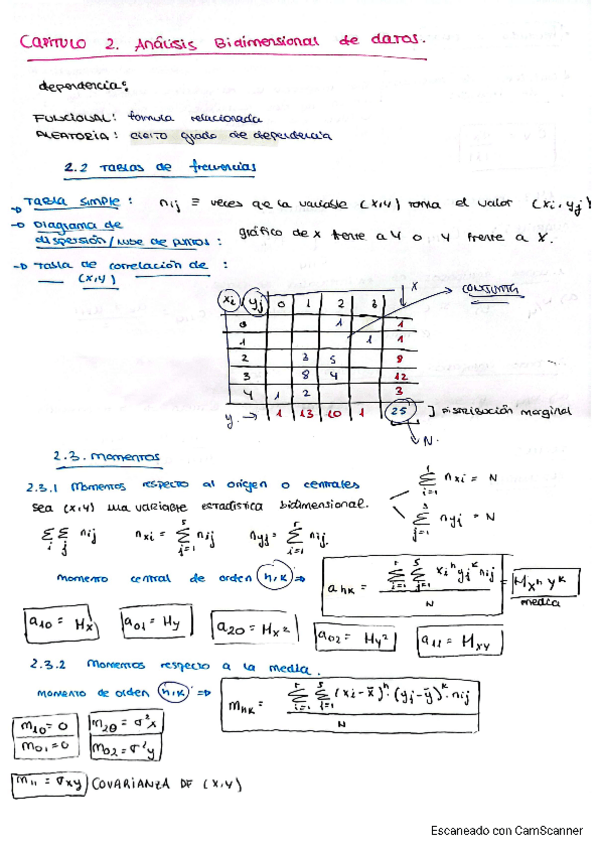 CAPITULO 2. Análisis Bidimensional de datos.
dependencia:
FUNCIONAL: formula relacionada
ALEATORIA: cierto grado de dependencia
2.2 Tablas de frecuencias
→ Tabla simple: nij ≡ veces que la variable (x,y) toma el valor (xi, yj)
→ Diagrama de dispersión/nube de puntos: gráfico de x frente a y o y frente a x.
→ Tabla de correlación de (x,y):
xi yj 0 1 2 3 ↓ x → CONJUNTA
0 1 1
1 1 1
2 3 5 8
3 8 4 12
4 1 2 3
y → 1 13 10 1 25 ] Distribución marginal
↓ N.
2.3. Momentos
2.3.1 Momentos respecto al origen o centrales
sea (x,y) una variable estadística bidimensional.
Σi Σj nij nxi = Σ(j=1, s) nij nyj = Σ(i=1, r) nij
Σ(i=1) nxi = N
Σ(j=1) nyj = N
momento central de orden (h,k) ⇒ ahk = Σ(i=1, r) Σ(j=1, s) xi^h yj^k nij / N = Mx^h y^k
media
a10 = Mx a01 = My a20 = Mx² a02 = My² a11 = Mxy
2.3.2 Momentos respecto a la media.
momento de orden (h,k) ⇒ mhk = Σ(i=1, r) Σ(j=1, s) (xi-x̄)^h · (yj-ȳ)^k · nij / N
m10 = 0 m20 = σ²x
m01 = 0 m02 = σ²y
m11 = σxy COVARIANZA DE (x,y)
Escaneado con CamScanner